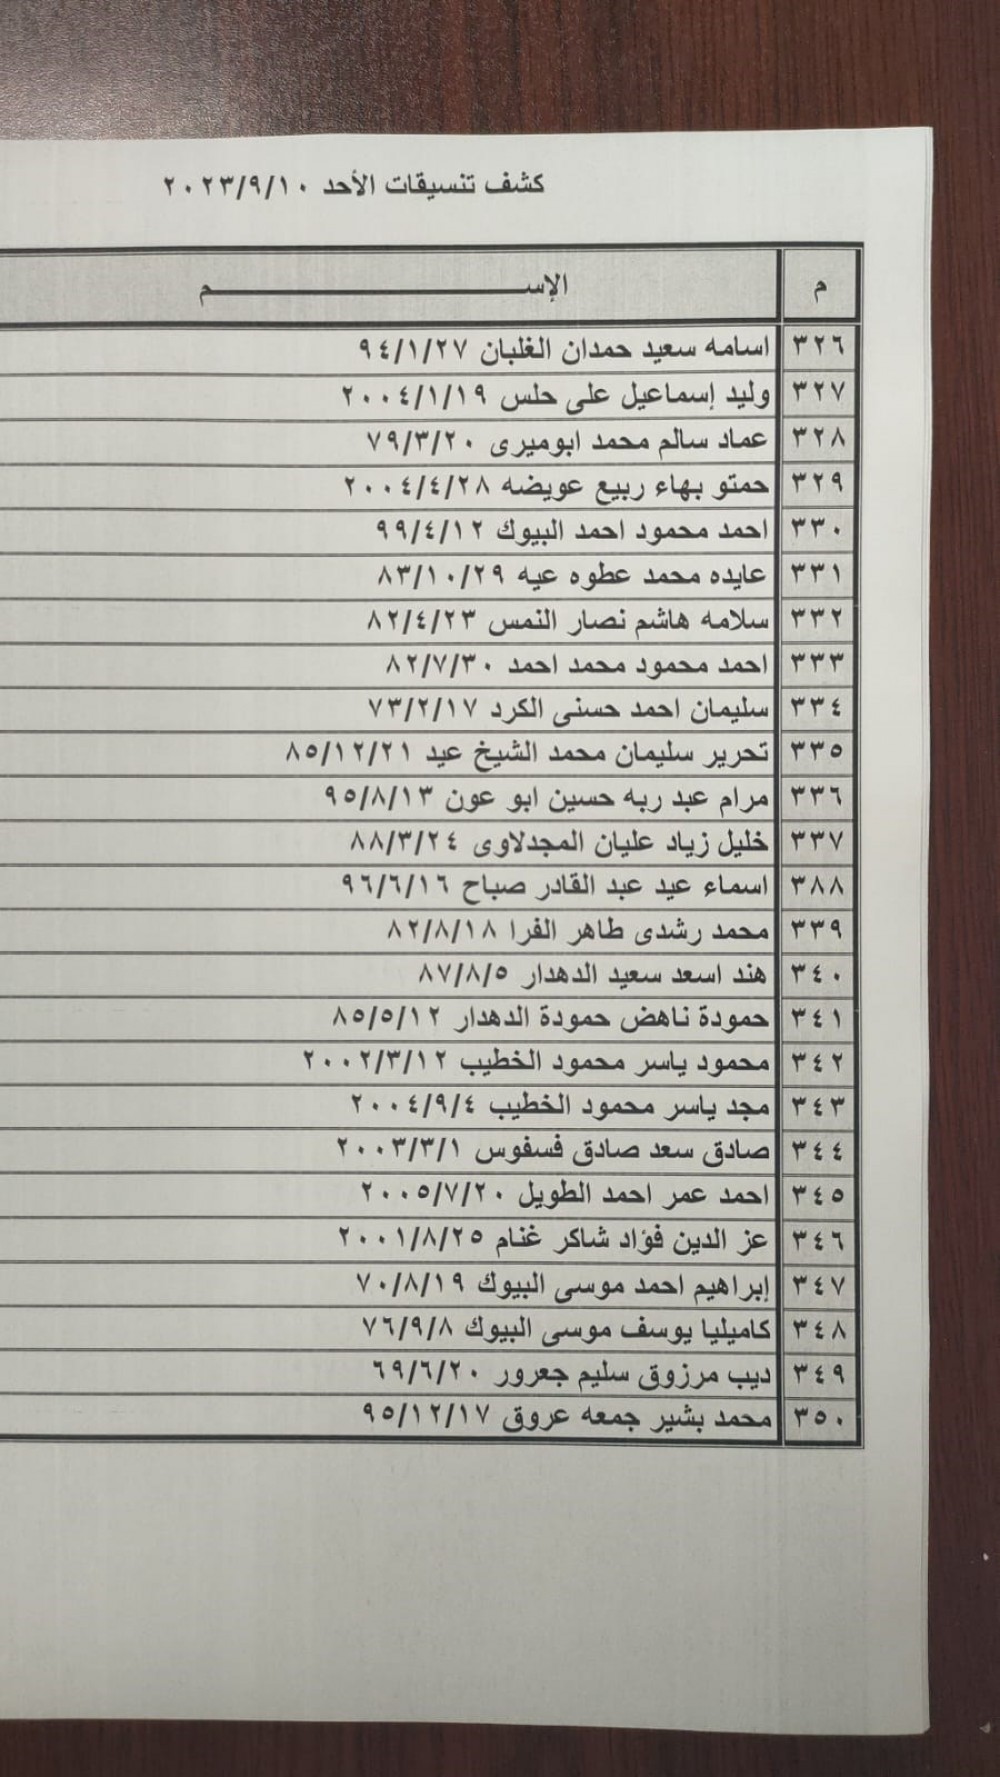 كشف تنسيقات الأحد ٢٠٢٣/٩/١٠
م الإســـــــــــــــــــــــــــــم
٣٢٦ اسامه سعيد حمدان الغلبان ٩٤/١/٢٧
٣٢٧ وليد إسماعيل على حلس ٢٠٠٤/١/١٩
٣٢٨ عماد سالم محمد ابوميرى ٧٩/٣/٢٠
٣٢٩ حمتو بهاء ربيع عويضه ٢٠٠٤/٤/٢٨
٣٣٠ احمد محمود احمد البيوك ٩٩/٤/١٢
٣٣١ عايده محمد عطوه عيه ٨٣/١٠/٢٩
٣٣٢ سلامه هاشم نصار النمس ٨٢/٤/٢٣
٣٣٣ احمد محمود محمد احمد ٨٢/٧/٣٠
٣٣٤ سليمان احمد حسنى الكرد ٧٣/٢/١٧
٣٣٥ تحرير سليمان محمد الشيخ عيد ٨٥/١٢/٢١
٣٣٦ مرام عبد ربه حسين ابو عون ٩٥/٨/١٣
٣٣٧ خليل زياد عليان المجدلاوى ٨٨/٣/٢٤
٣٨٨ اسماء عيد عبد القادر صباح ٩٦/٦/١٦
٣٣٩ محمد رشدى طاهر الفرا ٨٢/٨/١٨
٣٤٠ هند اسعد سعيد الدهدار ٨٧/٨/٥
٣٤١ حمودة ناهض حمودة الدهدار ٨٥/٥/١٢
٣٤٢ محمود ياسر محمود الخطيب ٢٠٠٢/٣/١٢
٣٤٣ مجد ياسر محمود الخطيب ٢٠٠٤/٩/٤
٣٤٤ صادق سعد صادق فسفوس ٢٠٠٣/٣/١
٣٤٥ احمد عمر احمد الطويل ٢٠٠٥/٧/٢٠
٣٤٦ عز الدين فؤاد شاكر غنام ٢٠٠١/٨/٢٥
٣٤٧ إبراهيم احمد موسى البيوك ٧٠/٨/١٩
٣٤٨ كاميليا يوسف موسى البيوك ٧٦/٩/٨
٣٤٩ ديب مرزوق سليم جعرور ٦٩/٦/٢٠
٣٥٠ محمد بشير جمعه عروق ٩٥/١٢/١٧